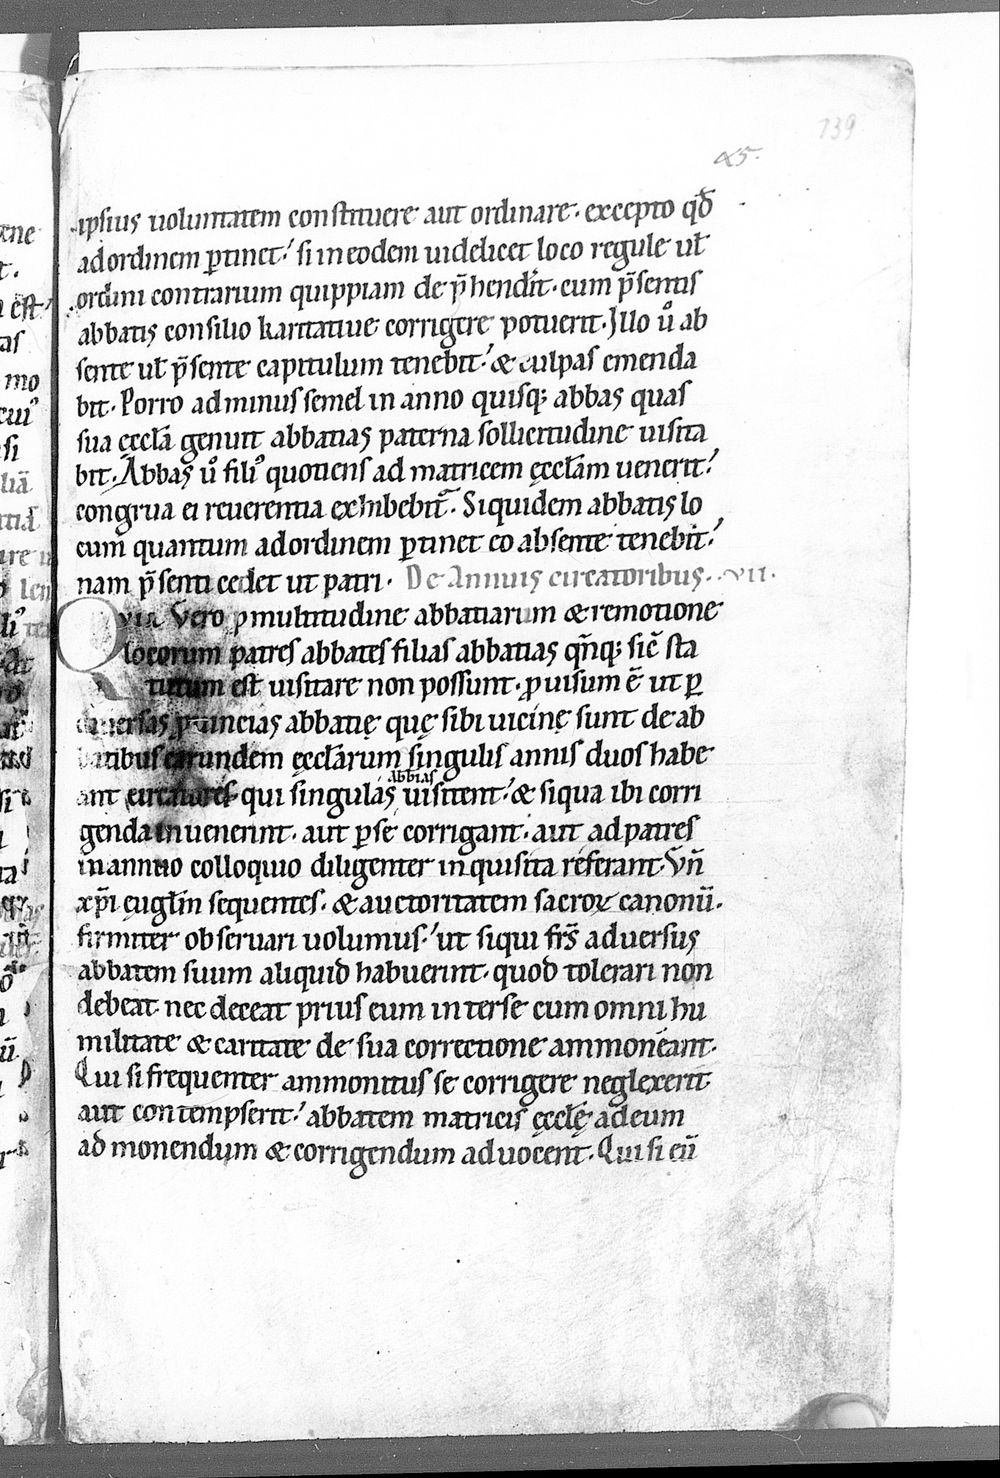 139
45.
ipsius uoluntatem constituere aut ordinare. excepto qđ
ad ordinem ꝑtinet. si in eodem uidelicet loco regule ut̵
ordini contrarium quippiam de p̄henderit. cum p̄sentis
abbatis consilio karitatiue corrigere potuerit. Illo ů ab
sente ut̵ p̄sente capitulum tenebit. & culpas emenda
bit. Porro ad minus semel in anno quisq; abbas quas
sua ęccła genuit abbatias paterna sollicitudine uisita
bit. Abbas ů fili᾿ quotiens ad matricem ęccłam uenerit.
congrua ei reuerentia exhibebit᷑. Siquidem abbatis lo
cum quantum ad ordinem ꝑtinet eo absente tenebit.
nam p̄senti cedet ut patri. De Annuis circatoribus. .vii.
Quia vero ꝓ multitudine abbatiarum & remotione
locorum patres abbates filias abbatias qn̄q; sic̄ sta
tutum est uisitare non possunt. ꝓuisum ē ut ꝑ
diuersas ꝓuincias abbatię quę sibi uicinę sunt de ab
batibus earundem ęccłarum singulis annis duos habe
abbias
ant circatores qui singulas uisitent. & siqua ibi corri
genda inuenerint. aut ꝑ se corrigant. aut ad patres
in annuo colloquio diligenter inquisita referant. Vn̄
xp̄i ęugłm sequentes. & auctoritatem sacroꝝ canonū.
firmiter obseruari uolumus. ut siqui frs̄ aduersus
abbatem suum aliquid habuerint. quod tolerari non
debeat nec deceat prius eum inter se cum omni hu
militate & caritate de sua correctione ammoneant.
Qui si frequenter ammonitus se corrigere neglexerit
aut contempserit. abbatem matricis ęcclę ad eum
ad monendum & corrigendum aduocent. Qui si eū